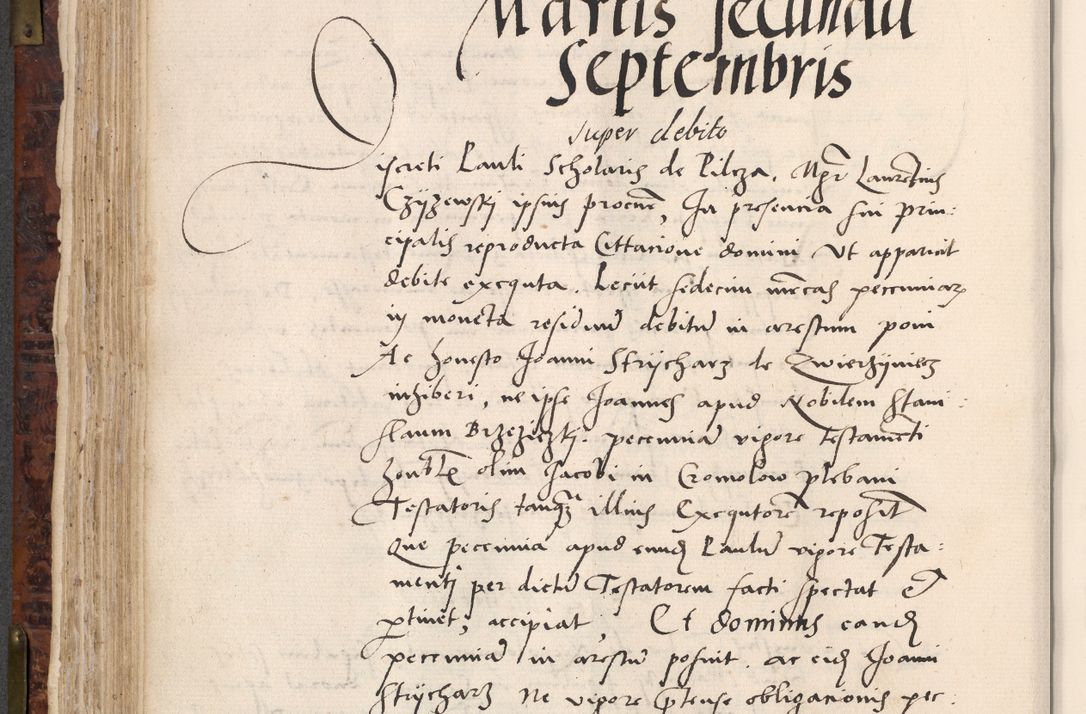 Martis secunda
Septembris
super debito
Discreti Pauli Scholaris de Pilcza, Mgr Laurentius
Czyżewskj ipsius procur, In presencia sui prin-
cipalis reproducta Cittacione domini Ut apparuit
debite exequta. Peciit sedecim mrcas peccuniarz
in moneta residuu debitu in arestum poni
Ac honesto Joanni Strycharz de Zwierzyniecz
inhiberi, ne ipse Joannes apud Nobilem Stani-
slaum Brzezieczkj. pecunia vigore Testamenti
honbl olim Jacobi in Cromolow plebani
Testatoris tanqz illius Exequtore reposit
Que pecunia apud eund Paulu vigore Testa-
menti per dictu Testatorem facti spectat et
ptinet, accipiat, Et dominus eand
peccunia in arestu posuit. ac eid Joanni
Strycharz Ne vigore ptense obligacionis pec-